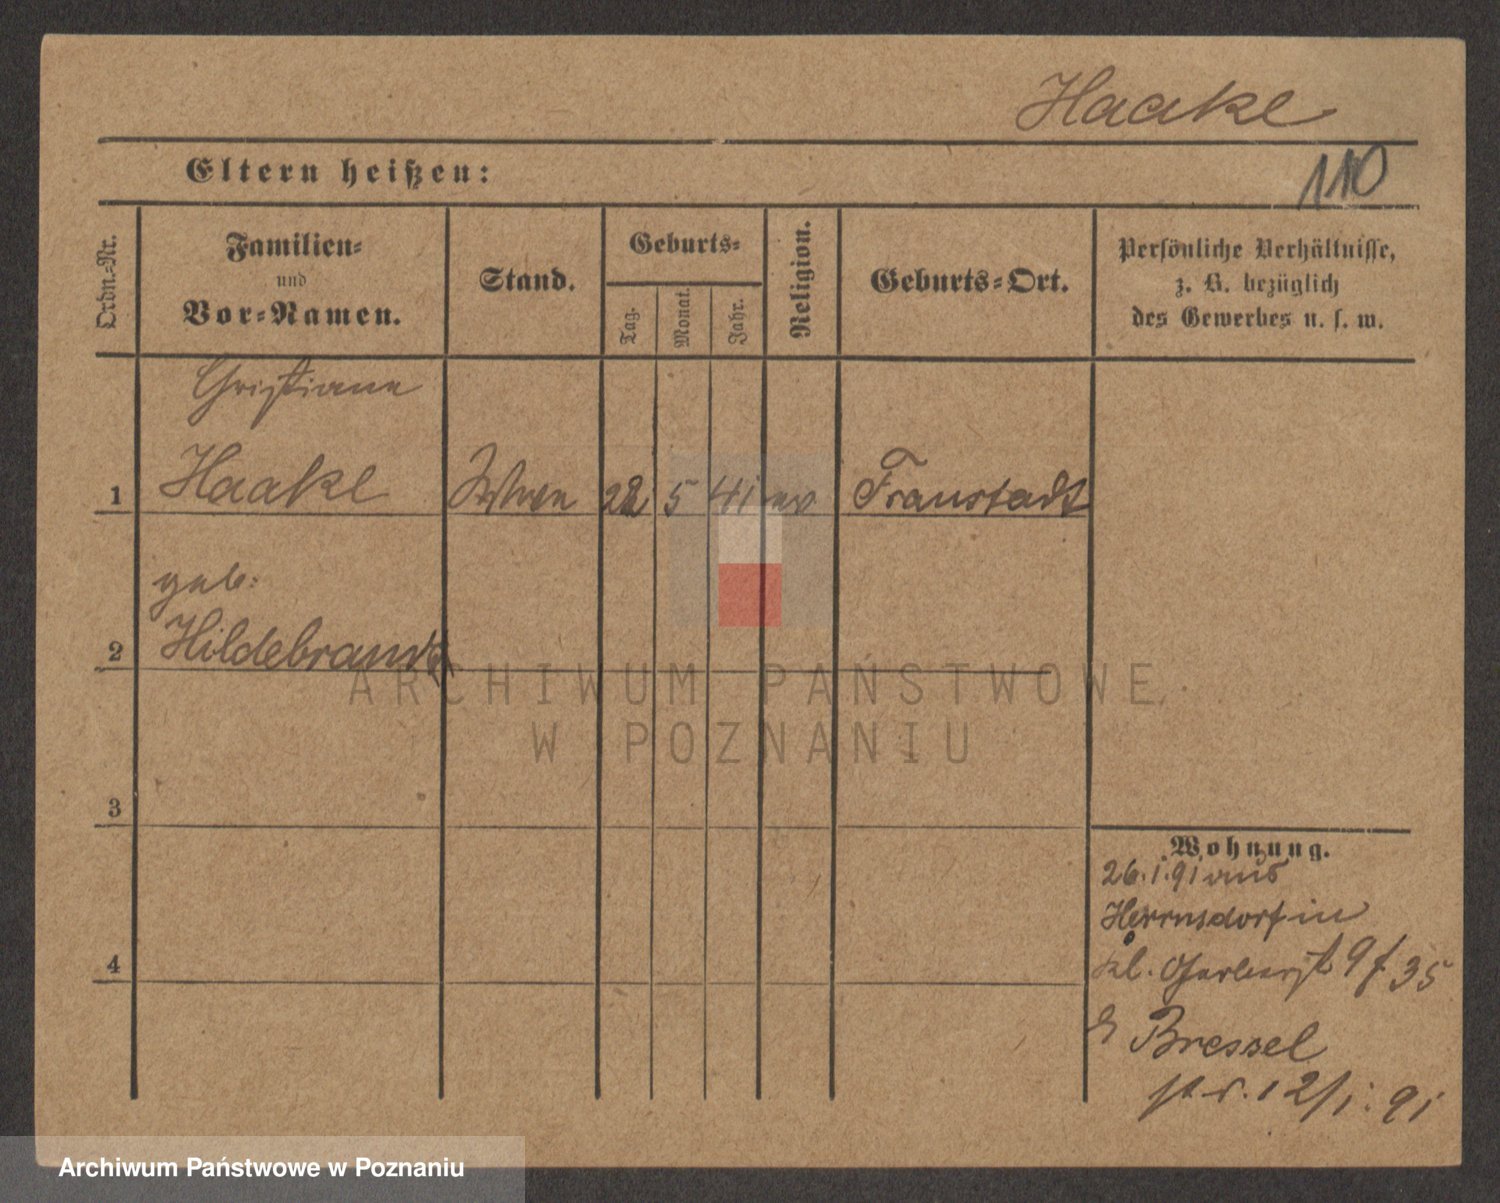 Haake
Eltern heißen:
110
Ordn.-Nr.
Familien-
und
Vor-Namen.
Stand.
Geburts-
Tag.
Monat.
Jahr.
Religion.
Geburts-Ort.
Persönliche Verhältnisse,
z. B. bezüglich
des Gewerbes u. s. w.
Christiane
1 Haake Wwe 22 5 41 ev Fraustadt
geb:
2 Hildebrandt
3
4
Wohnung.
26.1.91 aus
Herrnsdorf in
kl. Gerberst 9 f 35
Bressel
12/1.91
ARCHIWUM PAŃSTWOWE
W POZNANIU
Archiwum Państwowe w Poznaniu